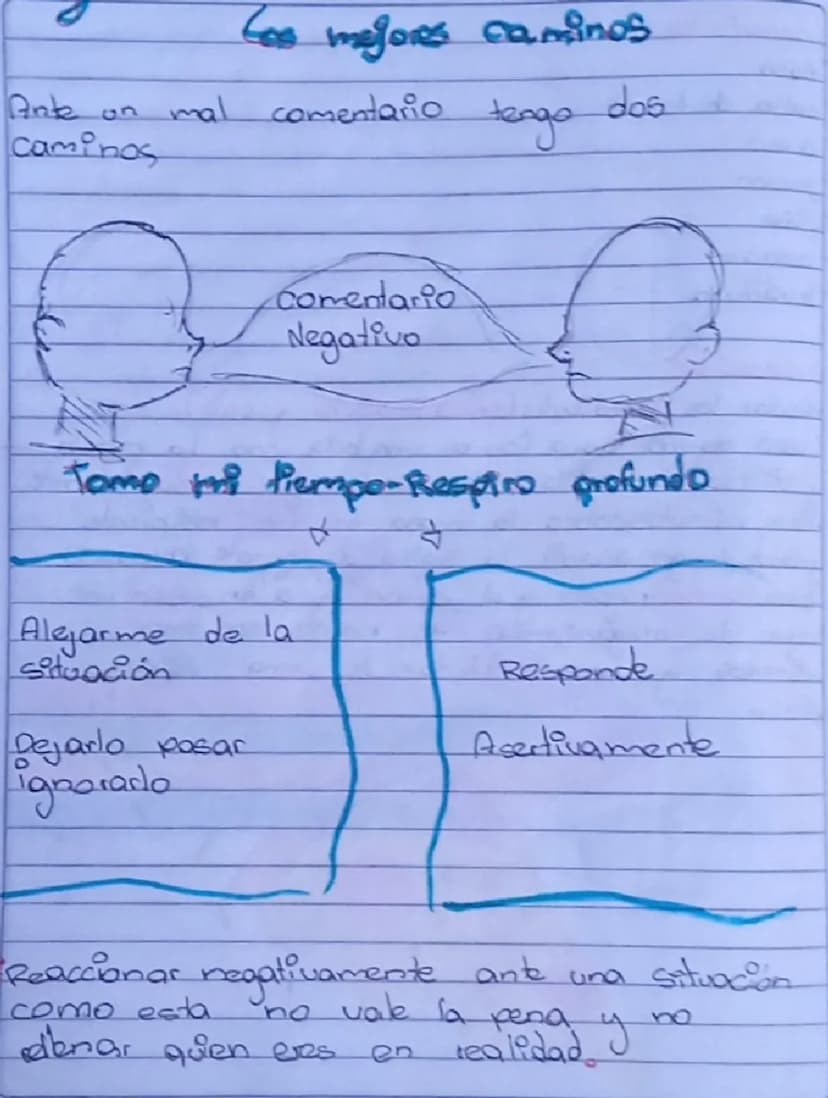 Los mejores caminos
Ante un mal comentario tengo dos
caminos
comentario
Negativo
Tomo mi tiempo-Respiro profundo
Alejarme de la
situación
Responde
Dejarlo pasar
ignorarlo
Asertivamente
Reaccionar negativamente ante una situación
como esta no vale la pena y no
quien eres en realidad.